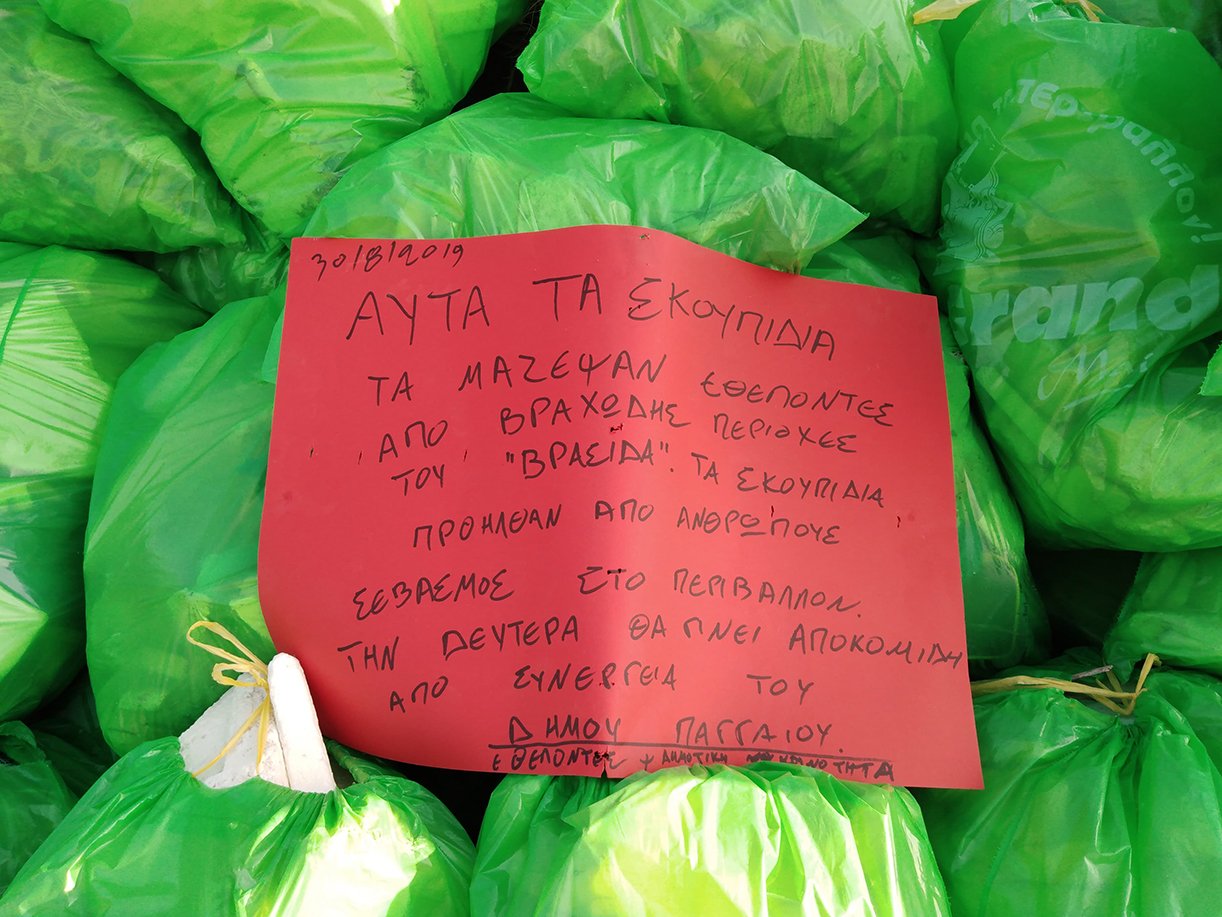 30/8/2019
ΑΥΤΑ ΤΑ ΣΚΟΥΠΙΔΙΑ
ΤΑ ΜΑΖΕΨΑΝ ΕΘΕΛΟΝΤΕΣ
ΑΠΟ ΒΡΑΧΩΔΗΣ ΠΕΡΙΟΧΕΣ
ΤΟΥ "ΒΡΑΣΙΔΑ". ΤΑ ΣΚΟΥΠΙΔΙΑ
ΠΡΟΗΛΘΑΝ ΑΠΟ ΑΝΘΡΩΠΟΥΣ
ΣΕΒΑΣΜΟΣ ΣΤΟ ΠΕΡΙΒΑΛΛΟΝ.
ΤΗΝ ΔΕΥΤΕΡΑ ΘΑ ΓΙΝΕΙ ΑΠΟΚΟΜΙΔΗ
ΑΠΟ ΣΥΝΕΡΓΕΙΑ ΤΟΥ
ΔΗΜΟΥ ΠΑΓΓΑΙΟΥ.
ΕΘΕΛΟΝΤΕΣ ΔΗΜΟΤΙΚΗ ΚΟΙΝΟΤΗΤΑ